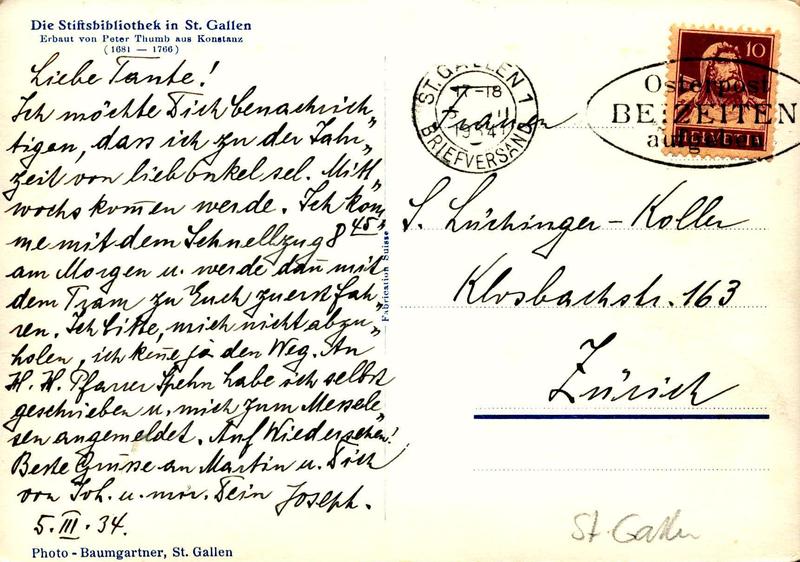 Die Stiftsbibliothek in St. Gallen
Erbaut von Peter Thumb aus Konstanz
(1681 — 1766)
Liebe Tante!
Ich möchte Dich benachrich„
tigen, dass ich zu der Jahr„
zeit von lieb Onkel sel. Mitt„
wochs kom̄en werde. Ich kom„
me mit dem Schnellzug 8 45
am Morgen u. werde dan̄ mit
dem Tram zu Euch zuerst fah„
ren. Ich bitte, mich nicht abzu„
holen, ich ken̄e ja den Weg. An
H. H. Pfarrer Spehn habe ich selbst
geschrieben u. mich zum Messele„
sen angemeldet. Auf Wiedersehen!
Beste Grüsse an Martin u. Dich
von Joh. u. mir. Dein Joseph.
5. III. 34.
Photo - Baumgartner, St. Gallen
Fabrication Suisse
ST. GALLEN 1
17-18
BRIEFVERSAND
10
HELVETIA
Osterpost
BEIZEITEN
aufgeben
Frau
S. Lüchinger-Koller
Klosbachstr. 163
Zürich
St. Gallen